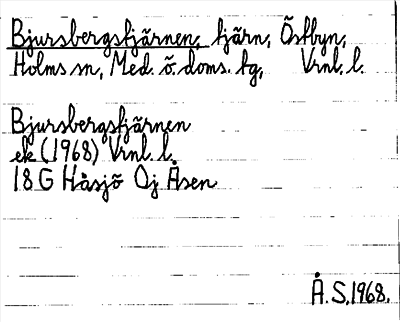 Bjursbergstjärnen, tjärn, Östbyn,
Holms sn, Med. ö. doms. tg, Vrnl. l.
Bjursbergstjärnen
ek (1968) Vrnl. l.
18G Håsjö Oj Åsen
Å.S. 1968.